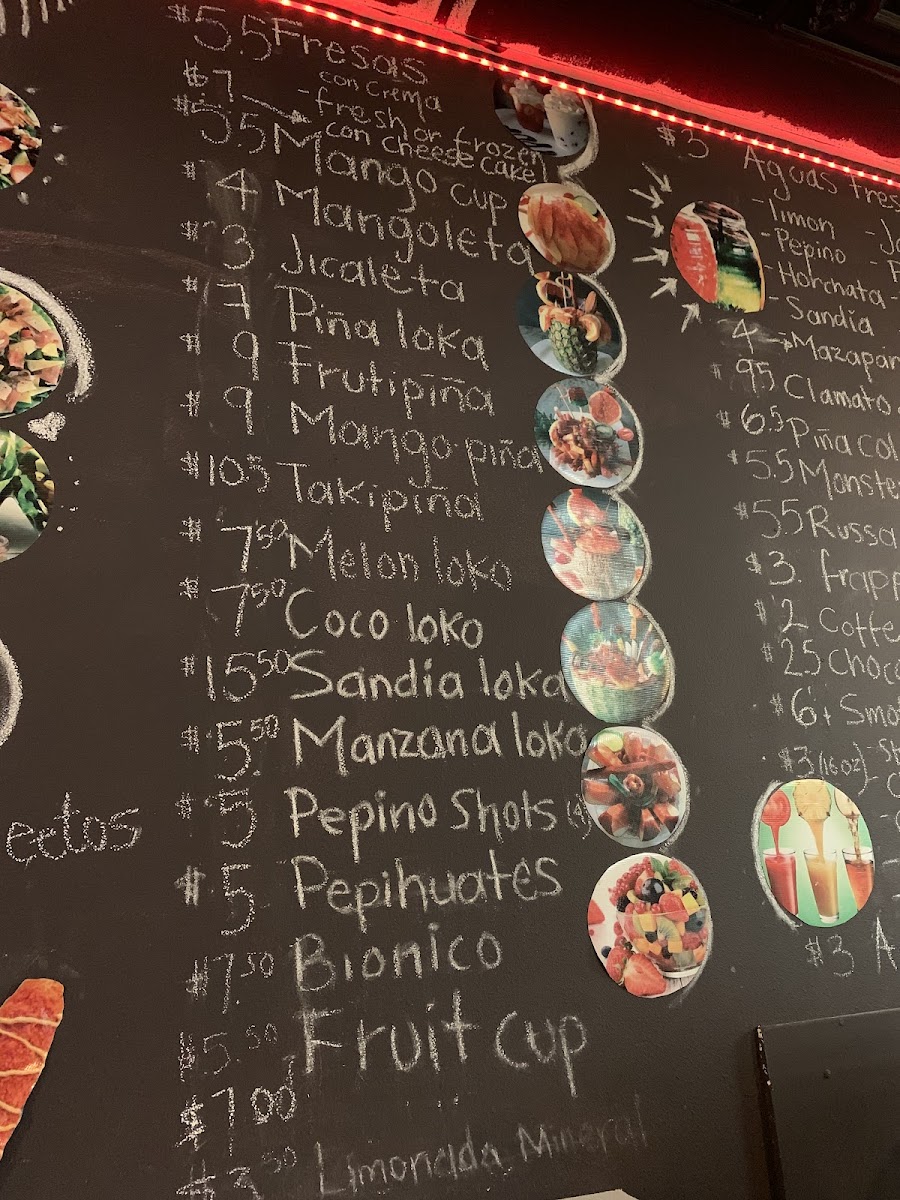 $5.5 Fresas
con crema
$7 - fresh or frozen
con cheese cake
$5.5 Mango cup
$4 Mangoleta
$3 Jicaleta
$7 Piña loka
$9 Frutipiña
$9 Mango piña
$10.5 Takipiña
$7.50 Melon loko
$7.50 Coco loko
$15.50 Sandia loka
$5.50 Manzana loka
$5 Pepino Shots (4)
$5 Pepihuates
$7.50 Bionico
$5.50 Fruit cup
$7.00
$3.50 Limonada Mineral
$3 Aguas fres
- limon
- Pepino
- Horchata -
- Sandia
4 Mazapan
$95 Clamato
$6.5 Piña Col
$5.5 Monste
$55 Russa
$3. frapp
$2 Coffe
$25 Choco
$6+ Smo
$3 (16 oz)
$3 A
ectos